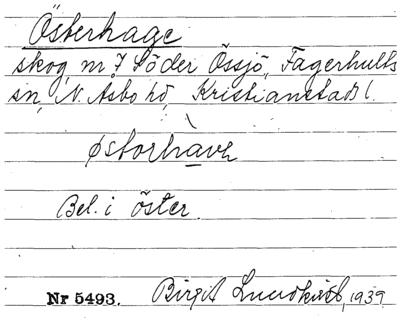 Österhage
skog, m. 7 Söder Össjö, Fagerhults
sn, N. Åsbo hd, Kristianstads l.
østərhàvə
Bel. i öster.
Nr 5493. Birgit Lundkvist, 1939